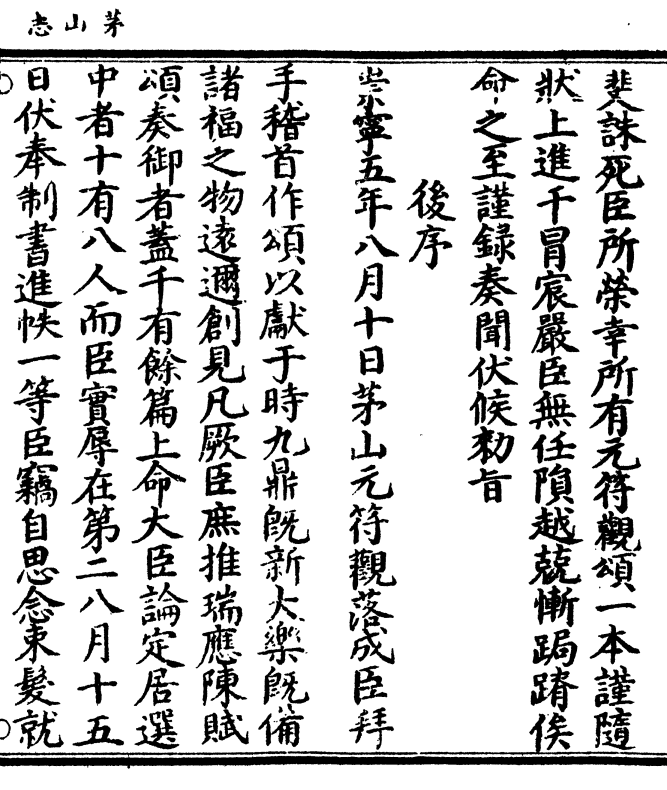 茅山志
斐誅死臣所榮幸所有元符觀頌一本謹隨
狀上進干冒宸嚴臣無任隕越兢慚跼蹐俟
命之至謹錄奏聞伏候勑旨
後序
崇寧五年八月十日茅山元符觀落成臣拜
手稽首作頌以獻于時九鼎旣新大樂旣備
諸福之物遠邇創見凡厥臣庶推瑞應陳賦
頌奏御者蓋千有餘篇上命大臣論定居選
中者十有八人而臣實辱在第二八月十五
日伏奉制書進帙一等臣竊自思念束髮就